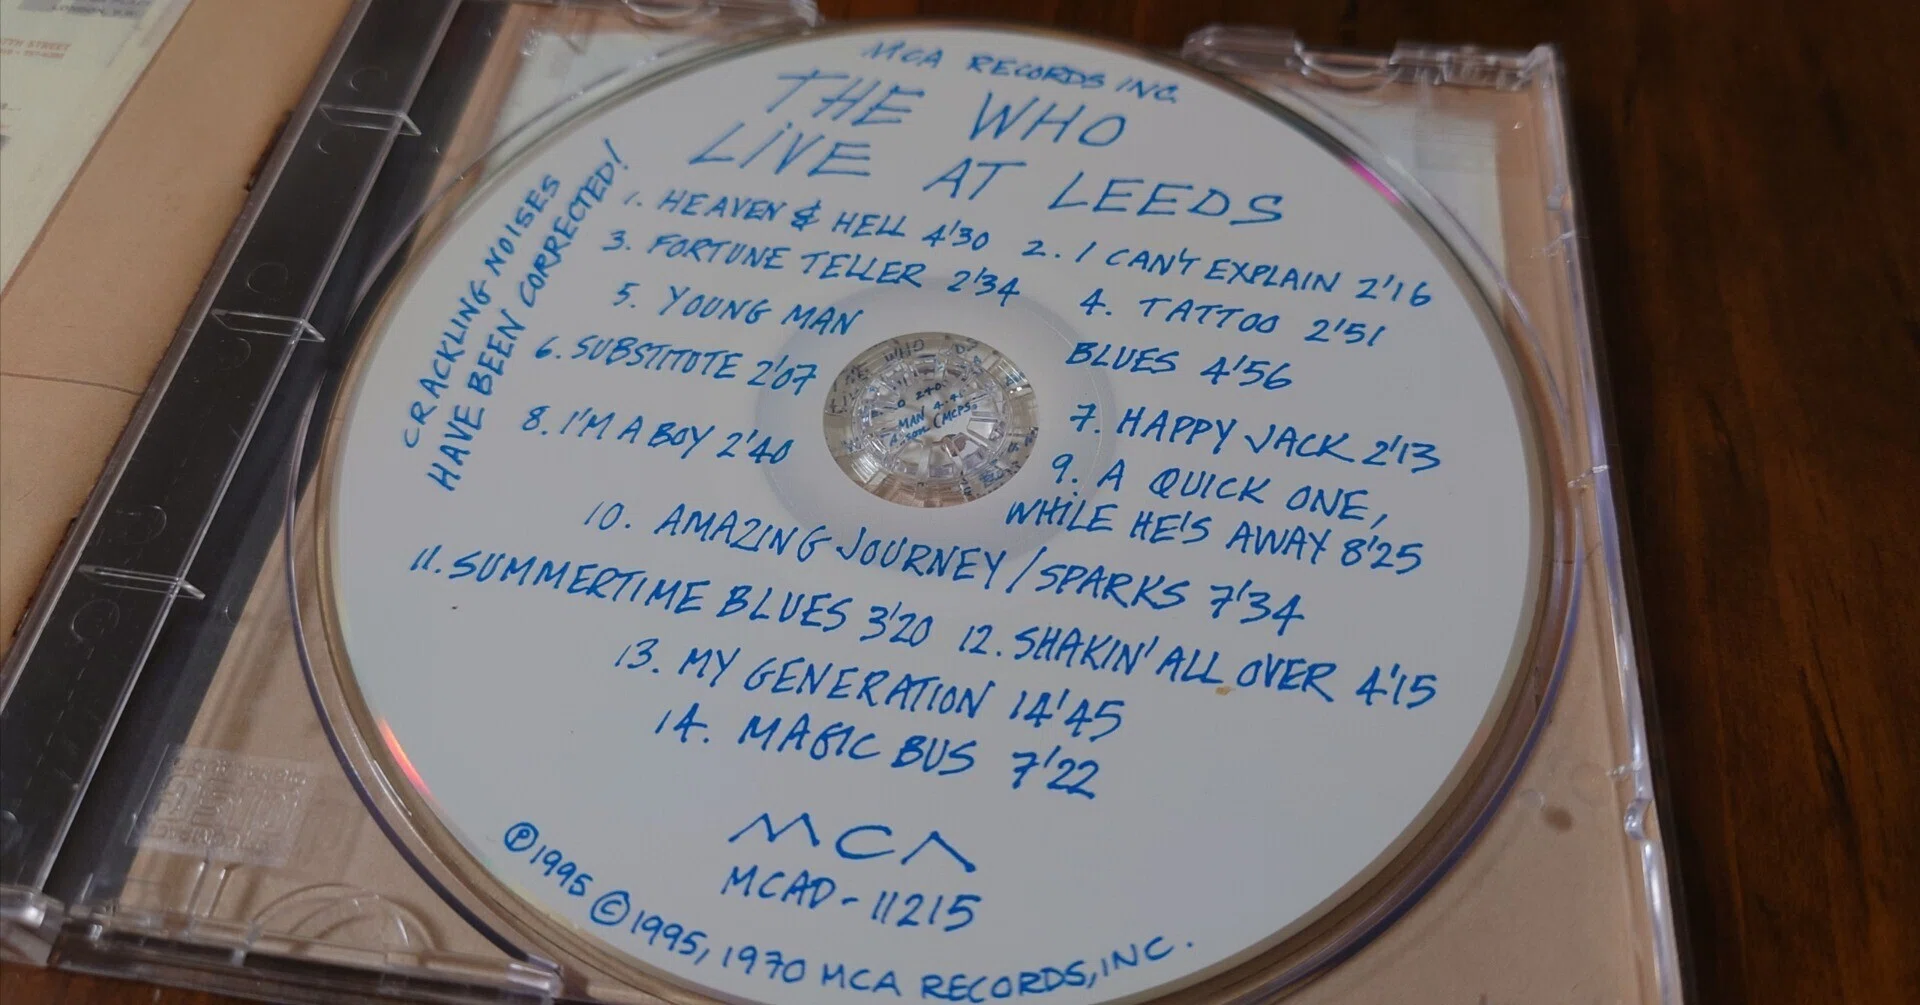 LONDON, W.
STREET
MCA RECORDS INC.
THE WHO
LIVE AT LEEDS
CRACKLING NOISES
HAVE BEEN CORRECTED!
1. HEAVEN & HELL 4'30 2. I CAN'T EXPLAIN 2'16
3. FORTUNE TELLER 2'34 4. TATTOO 2'51
5. YOUNG MAN BLUES 4'56
6. SUBSTITUTE 2'07 7. HAPPY JACK 2'13
8. I'M A BOY 2'40 9. A QUICK ONE,
WHILE HE'S AWAY 8'25
10. AMAZING JOURNEY/SPARKS 7'34
11. SUMMERTIME BLUES 3'20 12. SHAKIN' ALL OVER 4'15
13. MY GENERATION 14'45
14. MAGIC BUS 7'22
MCA
MCAD-11215
℗1995 ©1995, 1970 MCA RECORDS, INC.